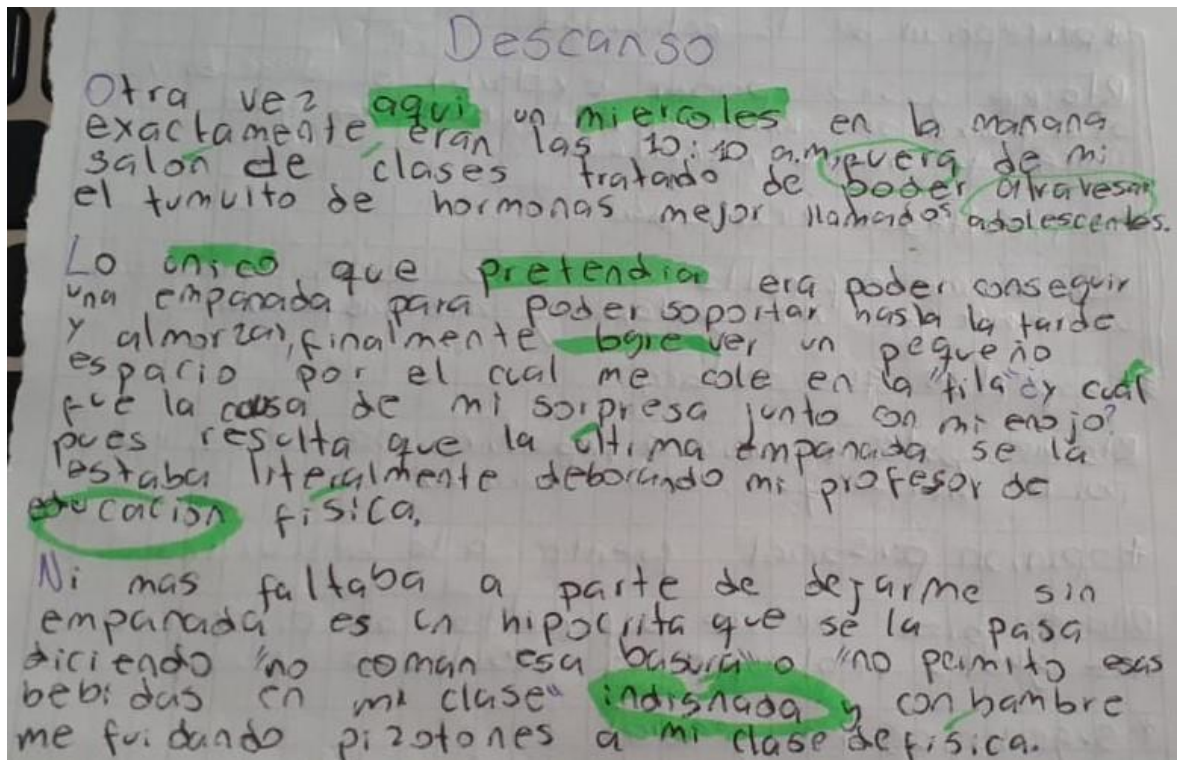 Descanso
Otra vez aqui un miercoles en la mañana
exactamente eran las 10:10 a.m, fuera de mi
salón de clases tratado de poder atravesar
el tumulto de hormonas mejor llamados adolescentes.
Lo unico que pretendia era poder conseguir
una empanada para poder soportar hasta la tarde
y almorzar, finalmente logre ver un pequeño
espacio por el cual me cole en la "fila" ¿y cuál
fue la causa de mi sorpresa junto con mi enojo?
pues resulta que la última empanada se la
estaba literalmente deborando mi profesor de
educación física.
Ni mas faltaba a parte de dejarme sin
empanada es un hipocrita que se la pasa
diciendo "no coman esa basura" o "no permito esas
bebidas en mi clase" indignada y con hambre
me fui dando pizotones a mi clase de física.